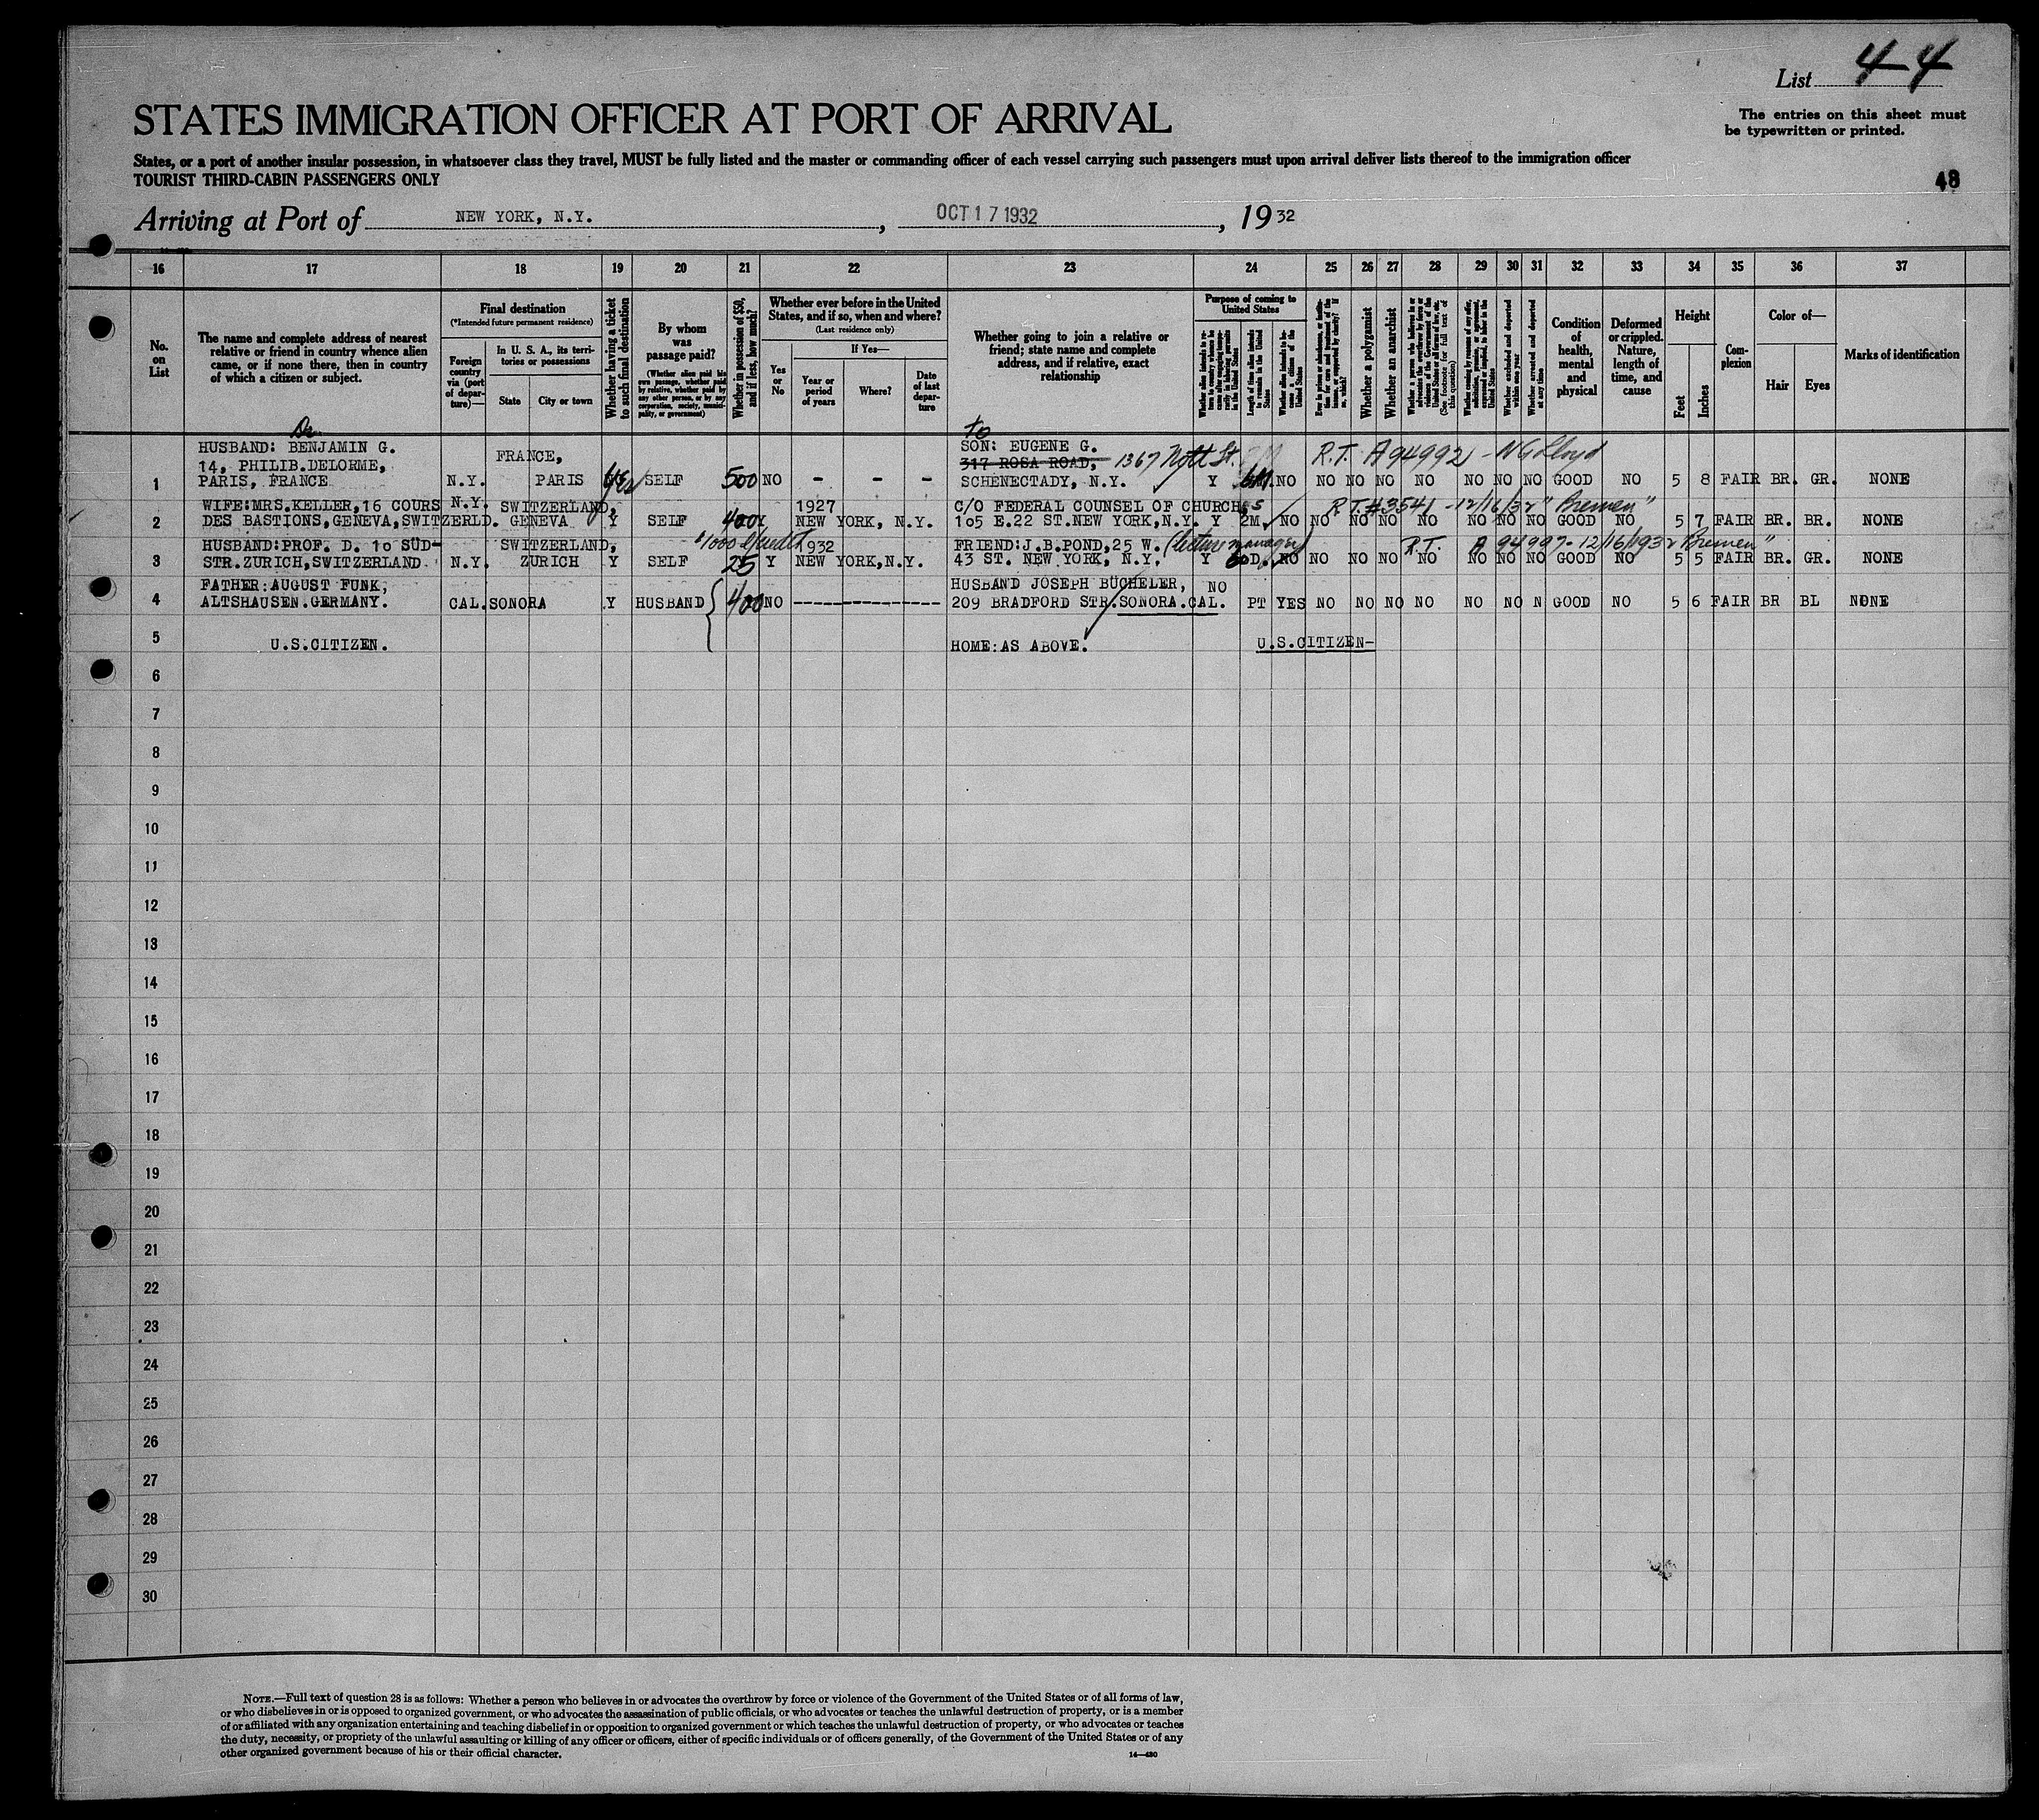 List 44
The entries on this sheet must
be typewritten or printed.
STATES IMMIGRATION OFFICER AT PORT OF ARRIVAL
States, or a port of another insular possession, in whatsoever class they travel, MUST be fully listed and the master or commanding officer of each vessel carrying such passengers must upon arrival deliver lists thereof to the immigration officer
TOURIST THIRD-CABIN PASSENGERS ONLY
48
Arriving at Port of NEW YORK, N.Y. , OCT 17 1932 , 1932
16 17 18 19 20 21 22 23 24 25 26 27 28 29 30 31 32 33 34 35 36 37
No.
on
List
The name and complete address of nearest
relative or friend in country whence alien
came, or if none there, then in country
of which a citizen or subject.
Final destination
(*Intended future permanent residence)
Foreign
country
via (port
of depar-
ture)—
In U. S. A., its terri-
tories or possessions
State City or town
Whether having a ticket
to such final destination
By whom
was
passage paid?
(Whether alien paid his
own passage, whether paid
by relative, whether paid by
any other person, or by any
corporation, society, munici-
pality, or government)
Whether in possession of $50,
and if less, how much?
Whether ever before in the United
States, and if so, when and where?
(Last residence only)
Yes
or
No
If Yes—
Year or
period
of years
Where?
Date
of last
depar-
ture
Whether going to join a relative or
friend; state name and complete
address, and if relative, exact
relationship
Purpose of coming to
United States
Length of time alien intends
to remain in the United
States
Whether alien intends to be-
come a citizen of the
United States
Whether a polygamist
Whether an anarchist
Whether excluded and deported
within one year
Whether arrested and deported
at any time
Condition
of
health,
mental
and
physical
Deformed
or crippled.
Nature,
length of
time, and
cause
Height
Feet
Inches
Com-
plexion
Color of—
Hair Eyes
Marks of identification
Dr. to
HUSBAND: BENJAMIN G. FRANCE, SON: EUGENE G. R.T. A94992 - NG Lloyd
14, PHILIB.DELORME, 317 ROSA ROAD, 1367 Nott St.
1 PARIS, FRANCE N.Y. PARIS Yes SELF 500 NO - - - SCHENECTADY, N.Y. Y 6M NO NO NO NO NO NO NO NO GOOD NO 5 8 FAIR BR. GR. NONE
WIFE:MRS.KELLER,16 COURS N.Y. SWITZERLAND, 1927 C/O FEDERAL COUNSEL OF CHURCHES R.T. #3541 - 12/16/32 "Bremen"
2 DES BASTIONS,GENEVA,SWITZERLD. GENEVA Y SELF 400 Y NEW YORK, N.Y. 105 E.22 ST.NEW YORK,N.Y. Y 2M. NO NO NO NO NO NO NO NO GOOD NO 5 7 FAIR BR. BR. NONE
HUSBAND:PROF. D. 10 SÜD- SWITZERLAND, $1000 credit 1932 FRIEND:J.B.POND,25 W. (lecture manager) R.T. A 94997 - 12/16/1932 Bremen"
3 STR.ZURICH,SWITZERLAND N.Y. ZURICH Y SELF 25 Y NEW YORK,N.Y. 43 ST. NEW YORK, N.Y. Y 60D. NO NO NO NO NO NO NO NO GOOD NO 5 5 FAIR BR. GR. NONE
FATHER:AUGUST FUNK, HUSBAND JOSEPH BÜCHELER, NO
4 ALTSHAUSEN.GERMANY. CAL.SONORA Y HUSBAND 400 NO --------------- 209 BRADFORD STR.SONORA.CAL. PT YES NO NO NO NO NO NO N GOOD NO 5 6 FAIR BR BL NONE
5 U.S.CITIZEN. HOME:AS ABOVE. U.S.CITIZEN-
6
7
8
9
10
11
12
13
14
15
16
17
18
19
20
21
22
23
24
25
26
27
28
29
30
NOTE.—Full text of question 28 is as follows: Whether a person who believes in or advocates the overthrow by force or violence of the Government of the United States or of all forms of law,
or who disbelieves in or is opposed to organized government, or who advocates the assassination of public officials, or who advocates or teaches the unlawful destruction of property, or is a member
of or affiliated with any organization entertaining and teaching disbelief in or opposition to organized government or which teaches the unlawful destruction of property, or who advocates or teaches
the duty, necessity, or propriety of the unlawful assaulting or killing of any officer or officers, either of specific individuals or of officers generally, of the Government of the United States or of any
other organized government because of his or their official character.
14—430